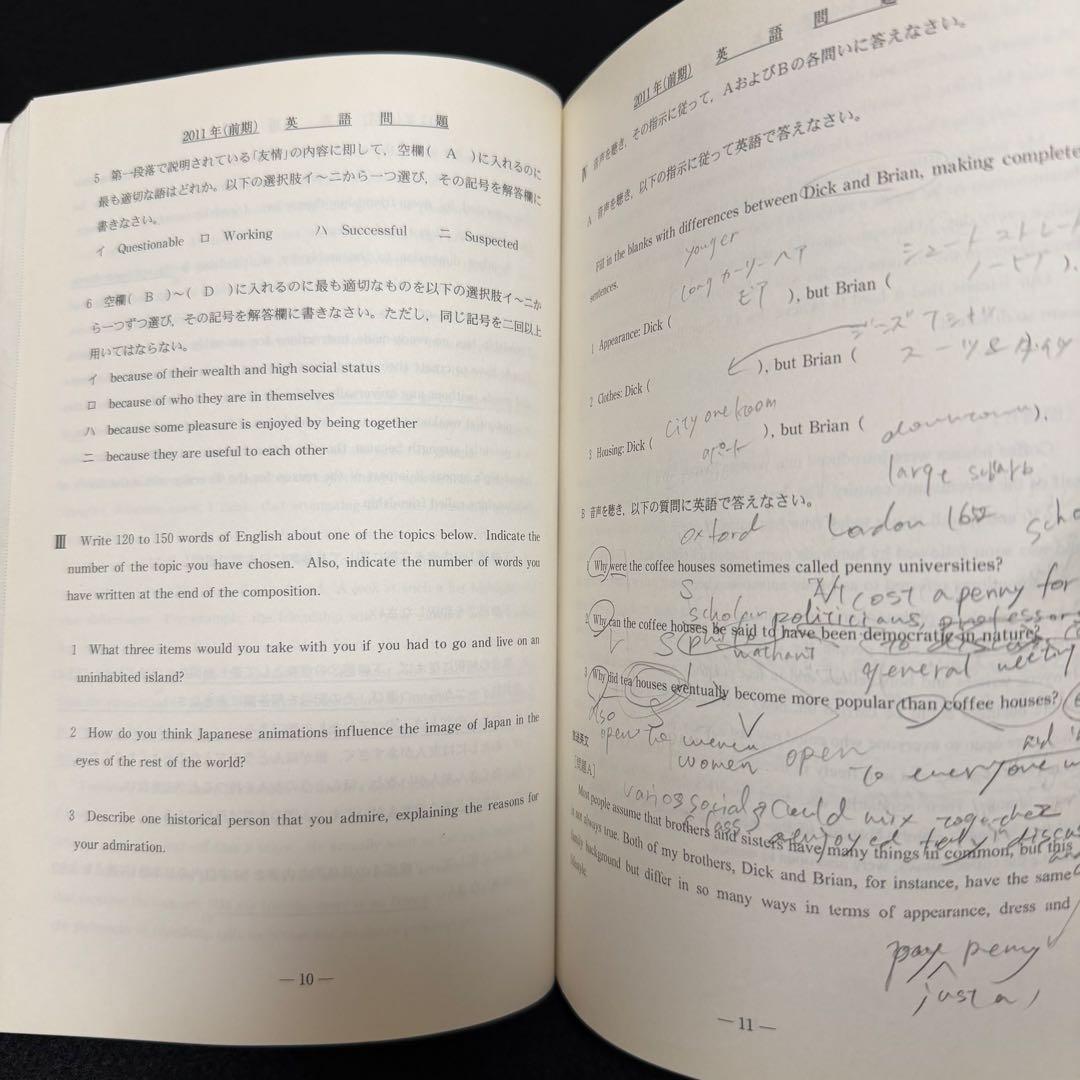 2011年(前期) 英 語 問 題
5 第一段落で説明されている「友情」の内容に即して,空欄( A )に入れるのに
最も適切な語はどれか。以下の選択肢イ~ニから一つ選び,その記号を解答欄に
書きなさい。
イ Questionable ロ Working ハ Successful ニ Suspected
6 空欄( B )~( D )に入れるのに最も適切なものを以下の選択肢イ~ニか
ら一つずつ選び,その記号を解答欄に書きなさい。ただし,同じ記号を二回以上
用いてはならない。
イ because of their wealth and high social status
ロ because of who they are in themselves
ハ because some pleasure is enjoyed by being together
ニ because they are useful to each other
Ⅲ Write 120 to 150 words of English about one of the topics below. Indicate the
number of the topic you have chosen. Also, indicate the number of words you
have written at the end of the composition.
1 What three items would you take with you if you had to go and live on an
uninhabited island?
2 How do you think Japanese animations influence the image of Japan in the
eyes of the rest of the world?
3 Describe one historical person that you admire, explaining the reasons for
your admiration.
— 10 —
2011年(前期) 英 語 問 題
Ⅳ 音声を聴き,その指示に従って,AおよびBの各問いに答えなさい。
A 音声を聴き,以下の指示に従って英語で答えなさい。
Fill in the blanks with differences between Dick and Brian, making complete
sentences.
youger
long カーリーヘア
1 Appearance: Dick ( ), but Brian ( ).
2 Clothes: Dick ( ), but Brian (
スーツ&タイ
city one room
3 Housing: Dick ( ), but Brian ( ).
downtown
large suburb
B 音声を聴き,以下の質問に英語で答えなさい。
oxford London
1 Why were the coffee houses sometimes called penny universities?
cost a penny for
scholar politicians, professors
2 Why can the coffee houses be said to have been democratic in nature?
general meeting
3 Why did tea houses eventually become more popular than coffee houses?
Also
open to women
women open to everyone
放送英文
[問題A]
social could mix together
class enjoyed
Most people assume that brothers and sisters have many things in common, but this
is not always true. Both of my brothers, Dick and Brian, for instance, have the same
family background but differ in so many ways in terms of appearance, dress and
lifestyle.
pay penny
just a
— 11 —